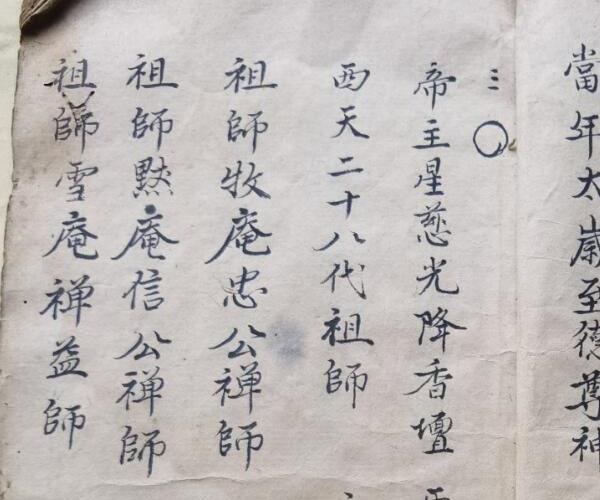 當年太歲至德尊神
帝主星慈光降香壇
西天二十八代祖師
祖師牧庵忠公禅師
祖師默庵信公禅師
祖師雪庵禅益師